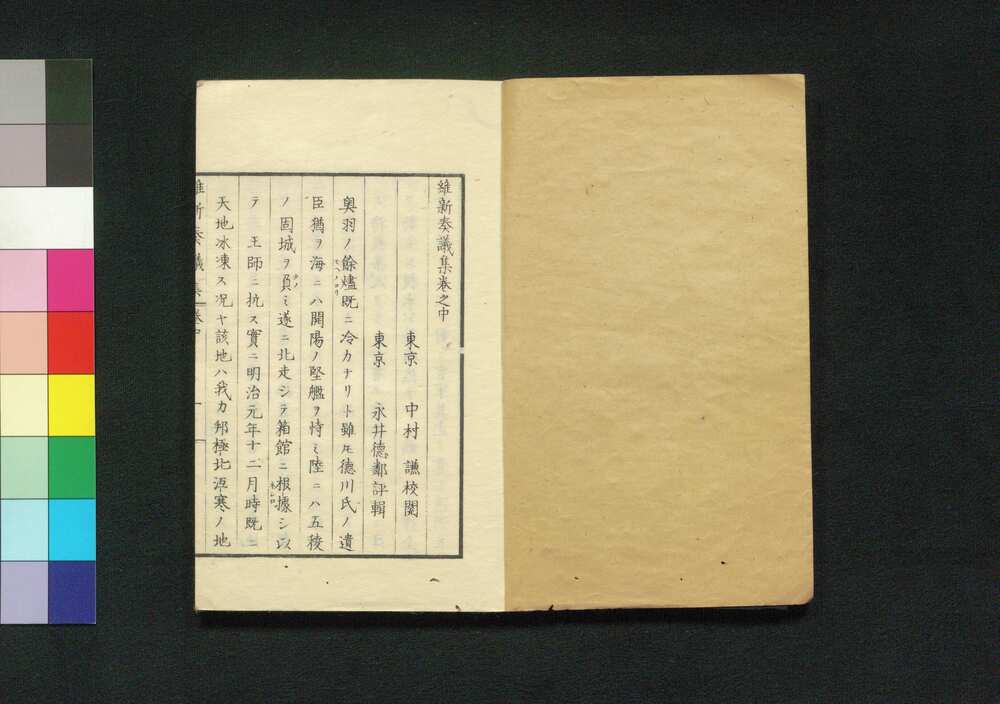 維新奏議集卷之中
東京 中村 謙校閲
東京 永井德鄰評輯
奥羽ノ餘燼既ニ冷カナリト雖モ德川氏ノ遺
臣猶ヲ海ニハ開陽ノ堅艦ヲ恃ミ陸ニハ五稜
ノ固城ヲ負ミ遂ニ北走シテ箱館ニ根據シ以
テ 王師ニ抗ス實ニ明治元年十二月時既ニ
天地冰凍ス况ヤ該地ハ我カ邦極北沍寒ノ地
維新奏議集 卷中